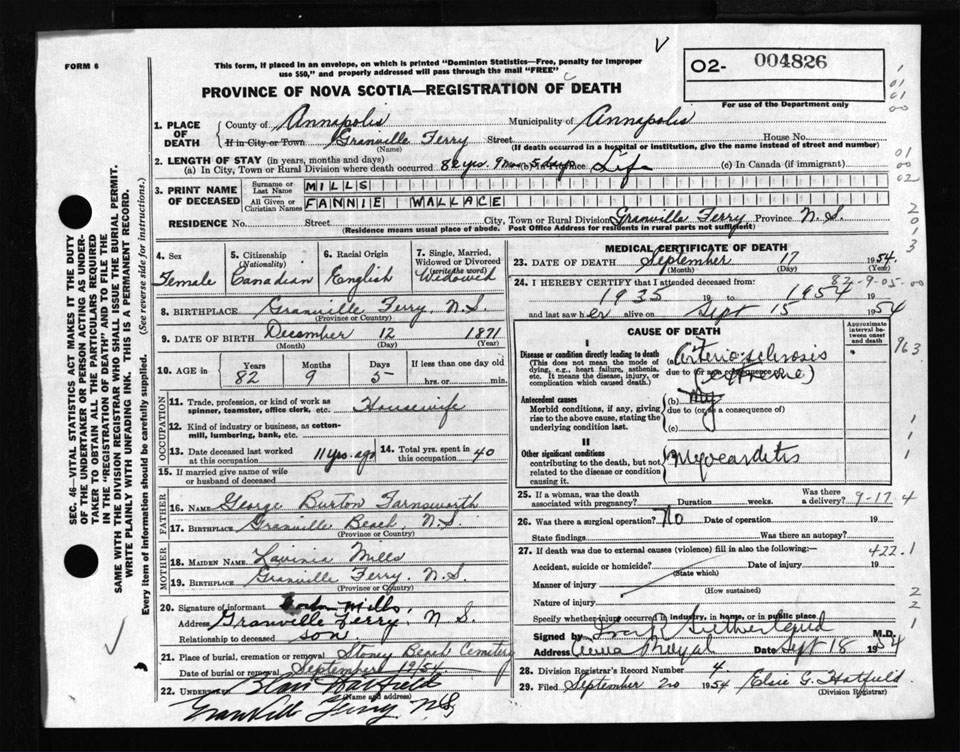 FORM 6
This form, if placed in an envelope, on which is printed "Dominion Statistics—Free, penalty for improper
use $50," and properly addressed will pass through the mail "FREE"
PROVINCE OF NOVA SCOTIA—REGISTRATION OF DEATH
O2- 004826
For use of the Department only
1. PLACE OF DEATH
County of Annapolis Municipality of Annapolis
If in City or Town Granville Ferry Street House No.
(Name) (If death occurred in a hospital or institution, give the name instead of street and number)
2. LENGTH OF STAY (in years, months and days)
(a) In City, Town or Rural Division where death occurred 82 yrs. 9 mos 5 days (b) In Province Life (c) In Canada (if immigrant)
3. PRINT NAME OF DECEASED
Surname or Last Name MILLS
All Given or Christian Names FANNIE WALLACE
RESIDENCE No. Street City, Town or Rural Division Granville Ferry Province N.S.
(Residence means usual place of abode. Post Office Address for residents in rural parts not sufficient)
4. Sex
Female
5. Citizenship
(Nationality)
Canadian
6. Racial Origin
English
7. Single, Married,
Widowed or Divorced
(write the word)
Widowed
8. BIRTHPLACE Granville Ferry, N.S.
(Province or Country)
9. DATE OF BIRTH December 12 1871
(Month) (Day) (Year)
10. AGE in Years Months Days If less than one day old
82 9 5 hrs. or min.
OCCUPATION
11. Trade, profession, or kind of work as
spinner, teamster, office clerk, etc. Housewife
12. Kind of industry or business, as cotton-
mill, lumbering, bank, etc.
13. Date deceased last worked
at this occupation 11 yrs. ago
14. Total yrs. spent in
this occupation 40
15. If married give name of wife
or husband of deceased
FATHER
16. NAME George Burton Farnsworth
17. BIRTHPLACE Granville Beach, N.S.
(Province or Country)
MOTHER
18. MAIDEN NAME Lavinia Mills
19. BIRTHPLACE Granville Ferry, N.S.
(Province or Country)
20. Signature of informant Mills
Address Granville Ferry, N S
Relationship to deceased son
21. Place of burial, cremation or removal Stoney Beach Cemetery
Date of burial or removal September 19/54
22. UNDERTAKER
(Name and address)
Granville Ferry N.S.
MEDICAL CERTIFICATE OF DEATH
23. DATE OF DEATH September 17 1954
(Month) (Day) (Year)
82-9-05-00
24. I HEREBY CERTIFY that I attended deceased from:
1935 19 to 1954 19
and last saw her alive on Sept 15 1954
CAUSE OF DEATH
Approximate interval between onset and death
I
Disease or condition directly leading to death
(This does not mean the mode of
dying, e.g., heart failure, asthenia,
etc. It means the disease, injury, or
complication which caused death.)
(a) Arterio-sclerosis
due to (or as a consequence of)
(extreme)
Antecedent causes
Morbid conditions, if any, giving
rise to the above cause, stating the
underlying condition last.
(b) My
due to (or as a consequence of)
(c)
II
Other significant conditions
contributing to the death, but not
related to the disease or condition
causing it.
Myocarditis
25. If a woman, was the death
associated with pregnancy? Duration weeks. Was there a delivery?
9-17 4
26. Was there a surgical operation? No Date of operation 19
State findings Was there an autopsy?
27. If death was due to external causes (violence) fill in also the following:—
422.1
Accident, suicide or homicide? Date of injury 19
(State which)
Manner of injury
(How sustained)
Nature of injury
Specify whether injury occurred in industry, in home, or in public place
Signed by M.D.
Address Anna Royal Date Sept 18 1954
28. Division Registrar's Record Number 4
29. Filed September 20 1954 Elsie G. Hatfield
(Division Registrar)
SEC. 46—VITAL STATISTICS ACT MAKES IT THE DUTY
OF THE UNDERTAKER OR PERSON ACTING AS UNDER-
TAKER TO OBTAIN ALL THE PARTICULARS REQUIRED
IN THE "REGISTRATION OF DEATH" AND TO FILE THE
SAME WITH THE DIVISION REGISTRAR WHO SHALL ISSUE THE BURIAL PERMIT.
WRITE PLAINLY WITH UNFADING INK. THIS IS A PERMANENT RECORD.
Every item of information should be carefully supplied. (See reverse side for instructions.)